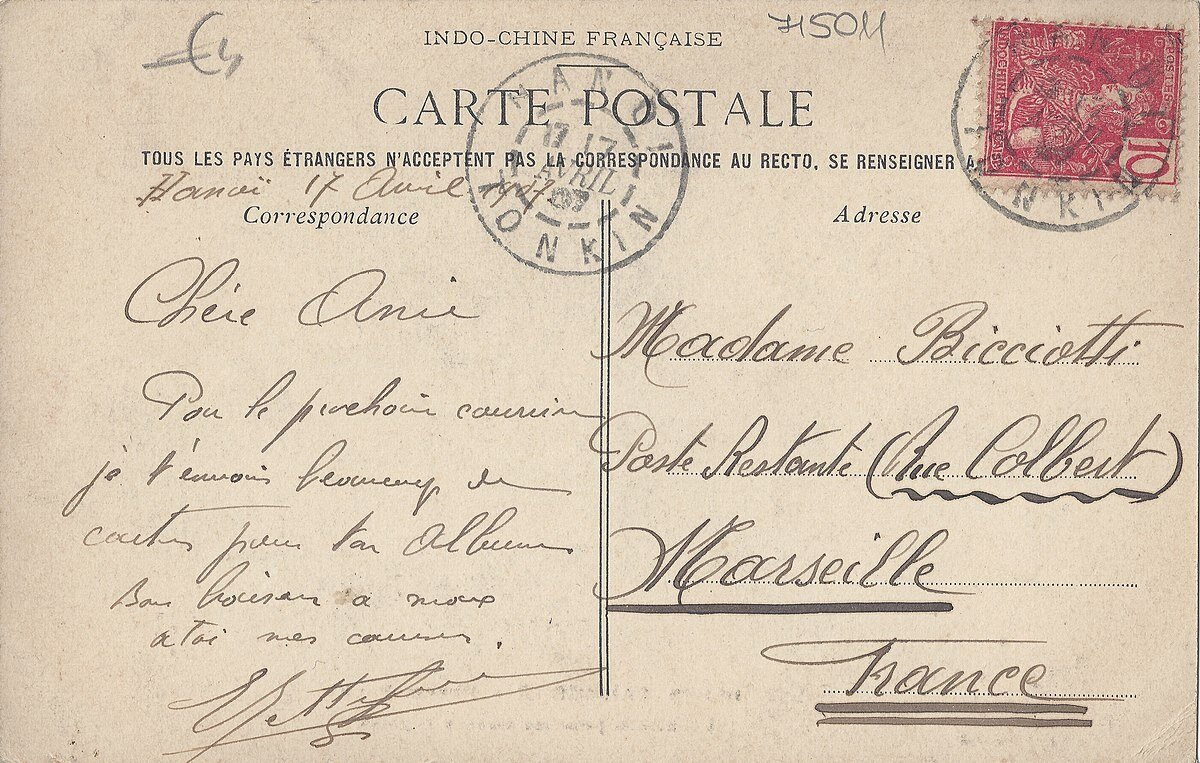 €4
71501
INDO-CHINE FRANÇAISE
CARTE POSTALE
TOUS LES PAYS ÉTRANGERS N'ACCEPTENT PAS LA CORRESPONDANCE AU RECTO. SE RENSEIGNER A
Hanoï 17 Avril 1907
HANOI
17 AVRIL
07
TONKIN
10
TONKIN
Correspondance
Adresse
Chère Amie
Pour le prochain courrier
je t'enverrai beaucoup de
cartes pour ton Album
Bons baisers a
a toi mes
Madame Bicciotti
Poste Restante (Rue Colbert)
Marseille
France